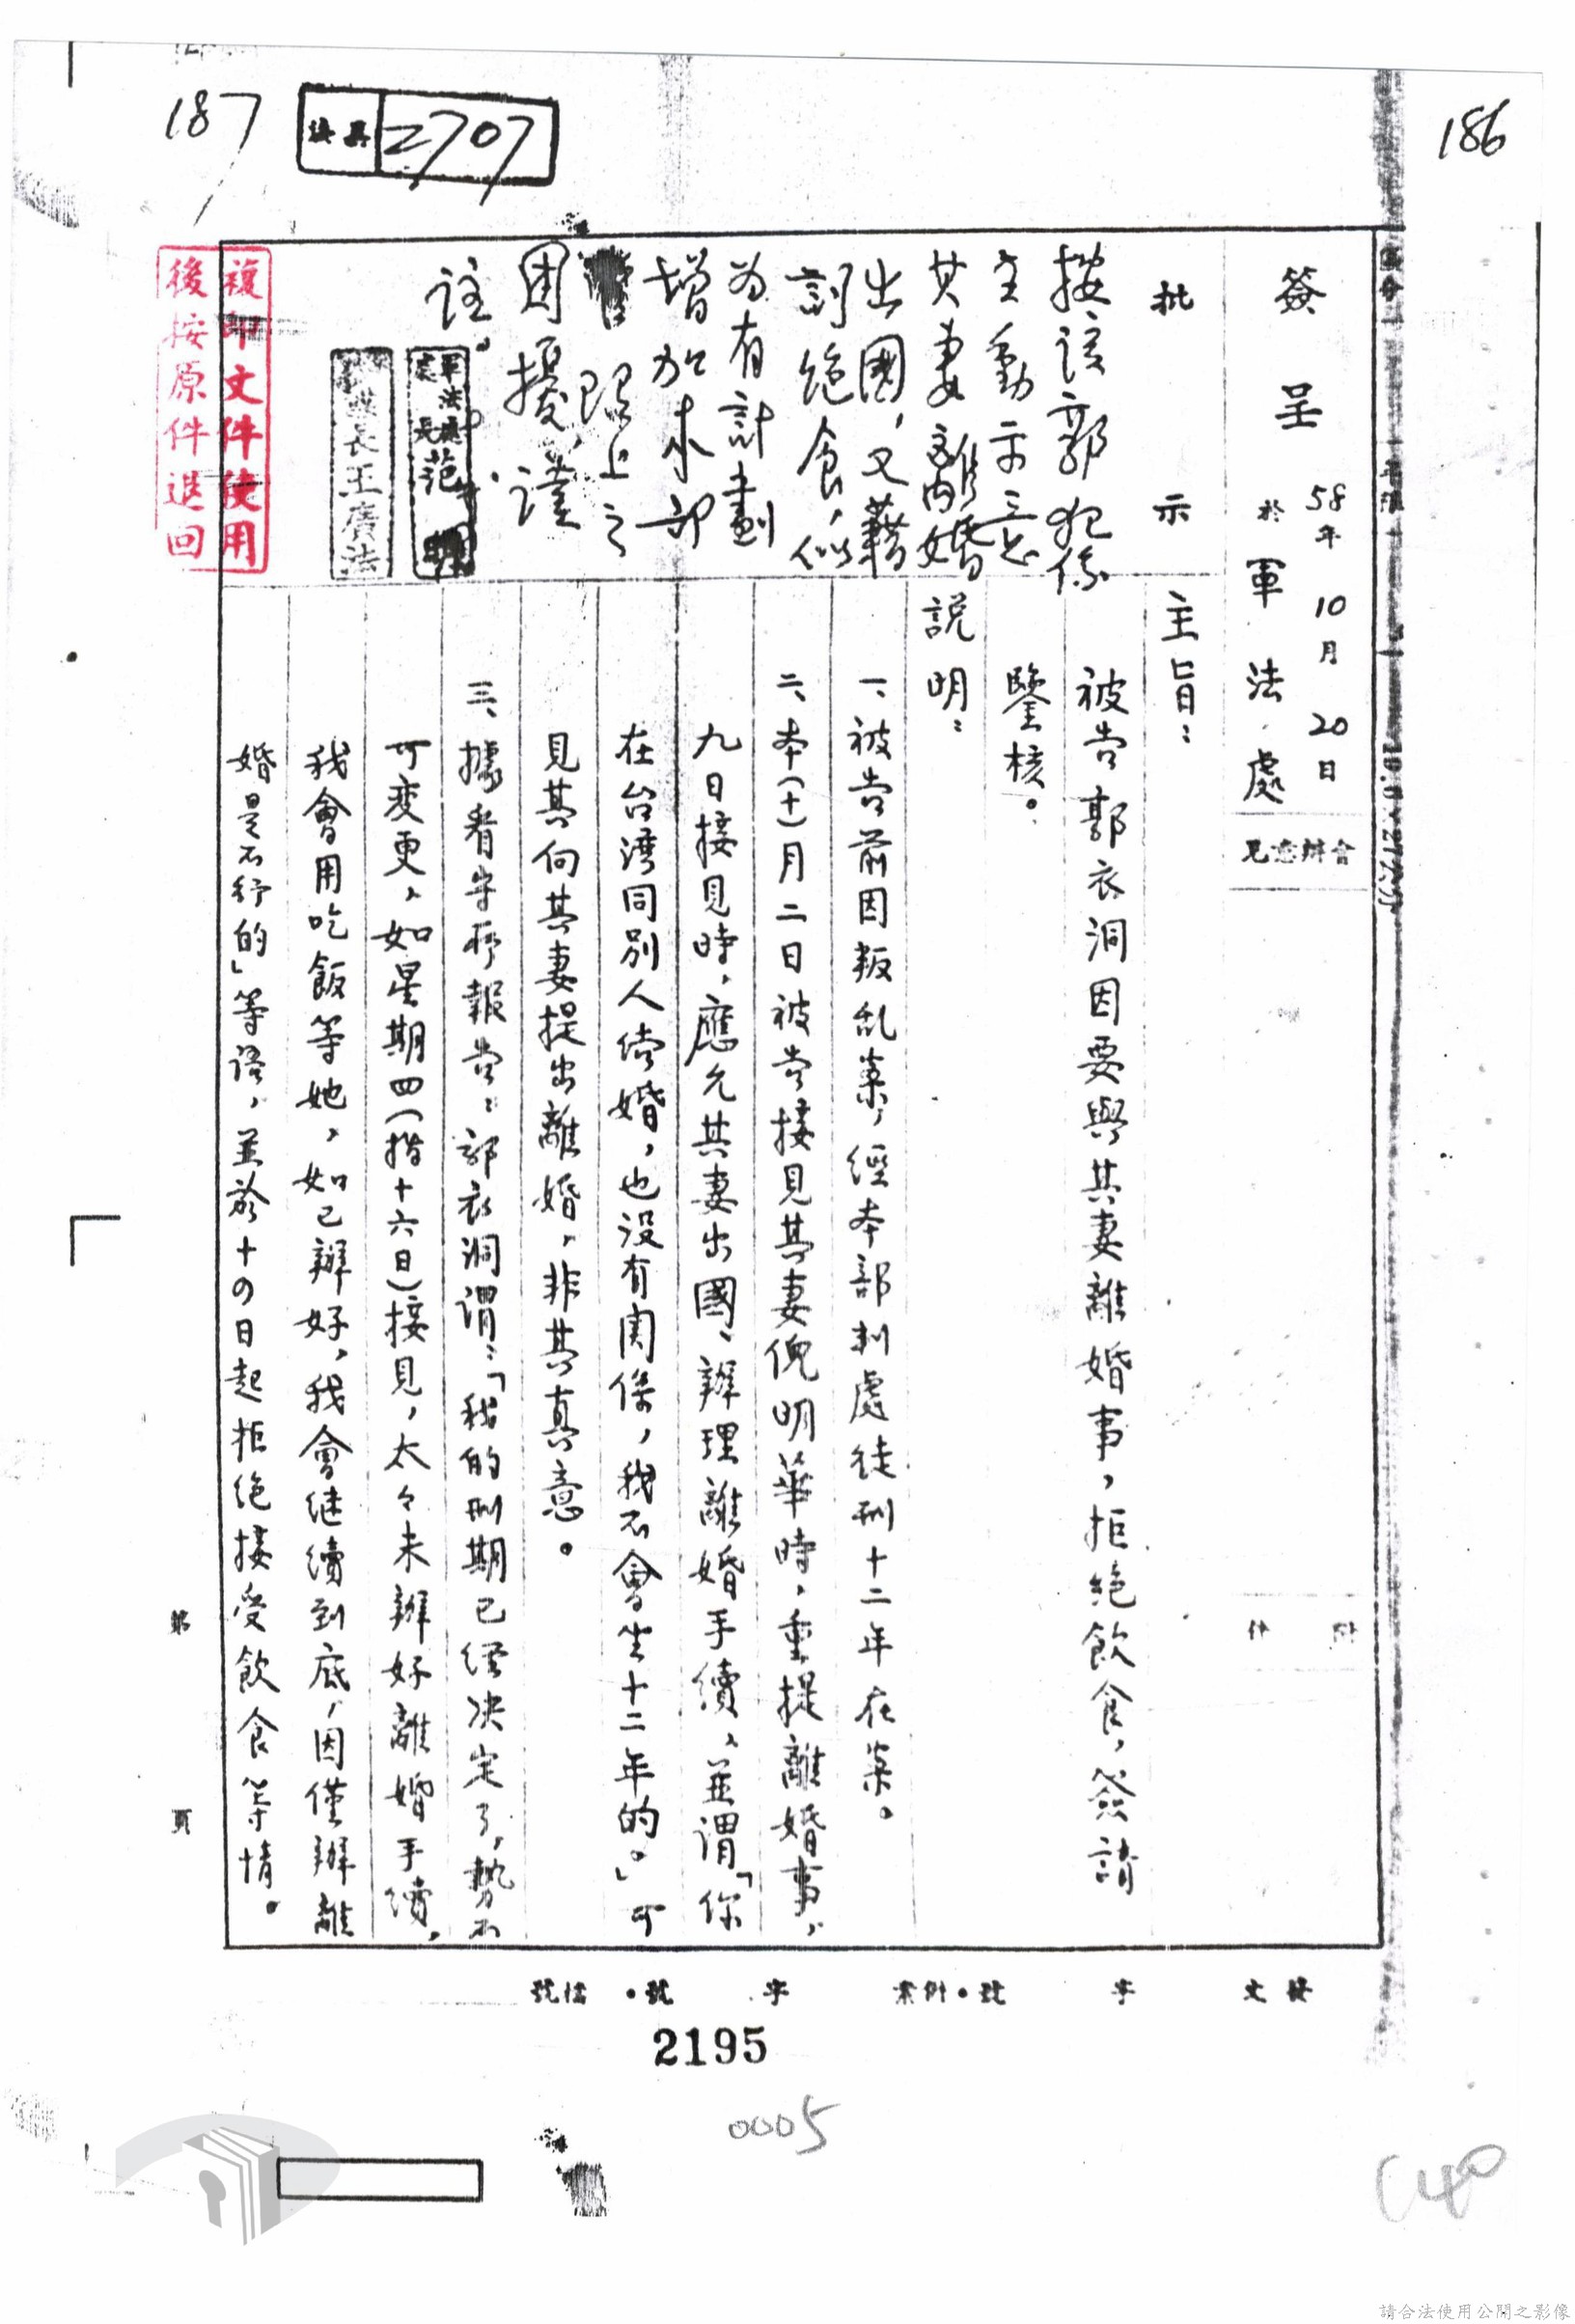 186
187
2707
簽呈
58年10月20日
於軍法處
會辦意見
附件
批示
按該郭犯係
主動示意
其妻離婚
出國,又藉
詞絕食,似
為有計劃
增加本部
困擾,謹
註。
軍法處處長范
王廣法
複印文件使用
後按原件退回
主旨:
被告郭衣洞因要與其妻離婚事,拒絕飲食,簽請
鑒核。
說明:
一、被告前因叛乱案,經本部判處徒刑十二年在案。
二、本(十)月二日被告接見其妻倪明華時,重提離婚事,
九日接見時,應允其妻出國、辦理離婚手續,並謂「你
在台湾同別人結婚,也没有関係,我不會坐十二年的。」可
見其向其妻提出離婚,非其真意。
三、據看守所報告:郭衣洞謂:「我的刑期已經决定了,勢不
可变更,如星期四(指十六日)接見,太々未辦好離婚手續,
我會用吃飯等她,如已辦好,我會継續到底,因僅辦離
婚是不行的」等語,並於十四日起拒絕接受飲食等情。
第 頁
接文 字 號・附案 字 號・檔號
2195
0005
請合法使用公開之影像